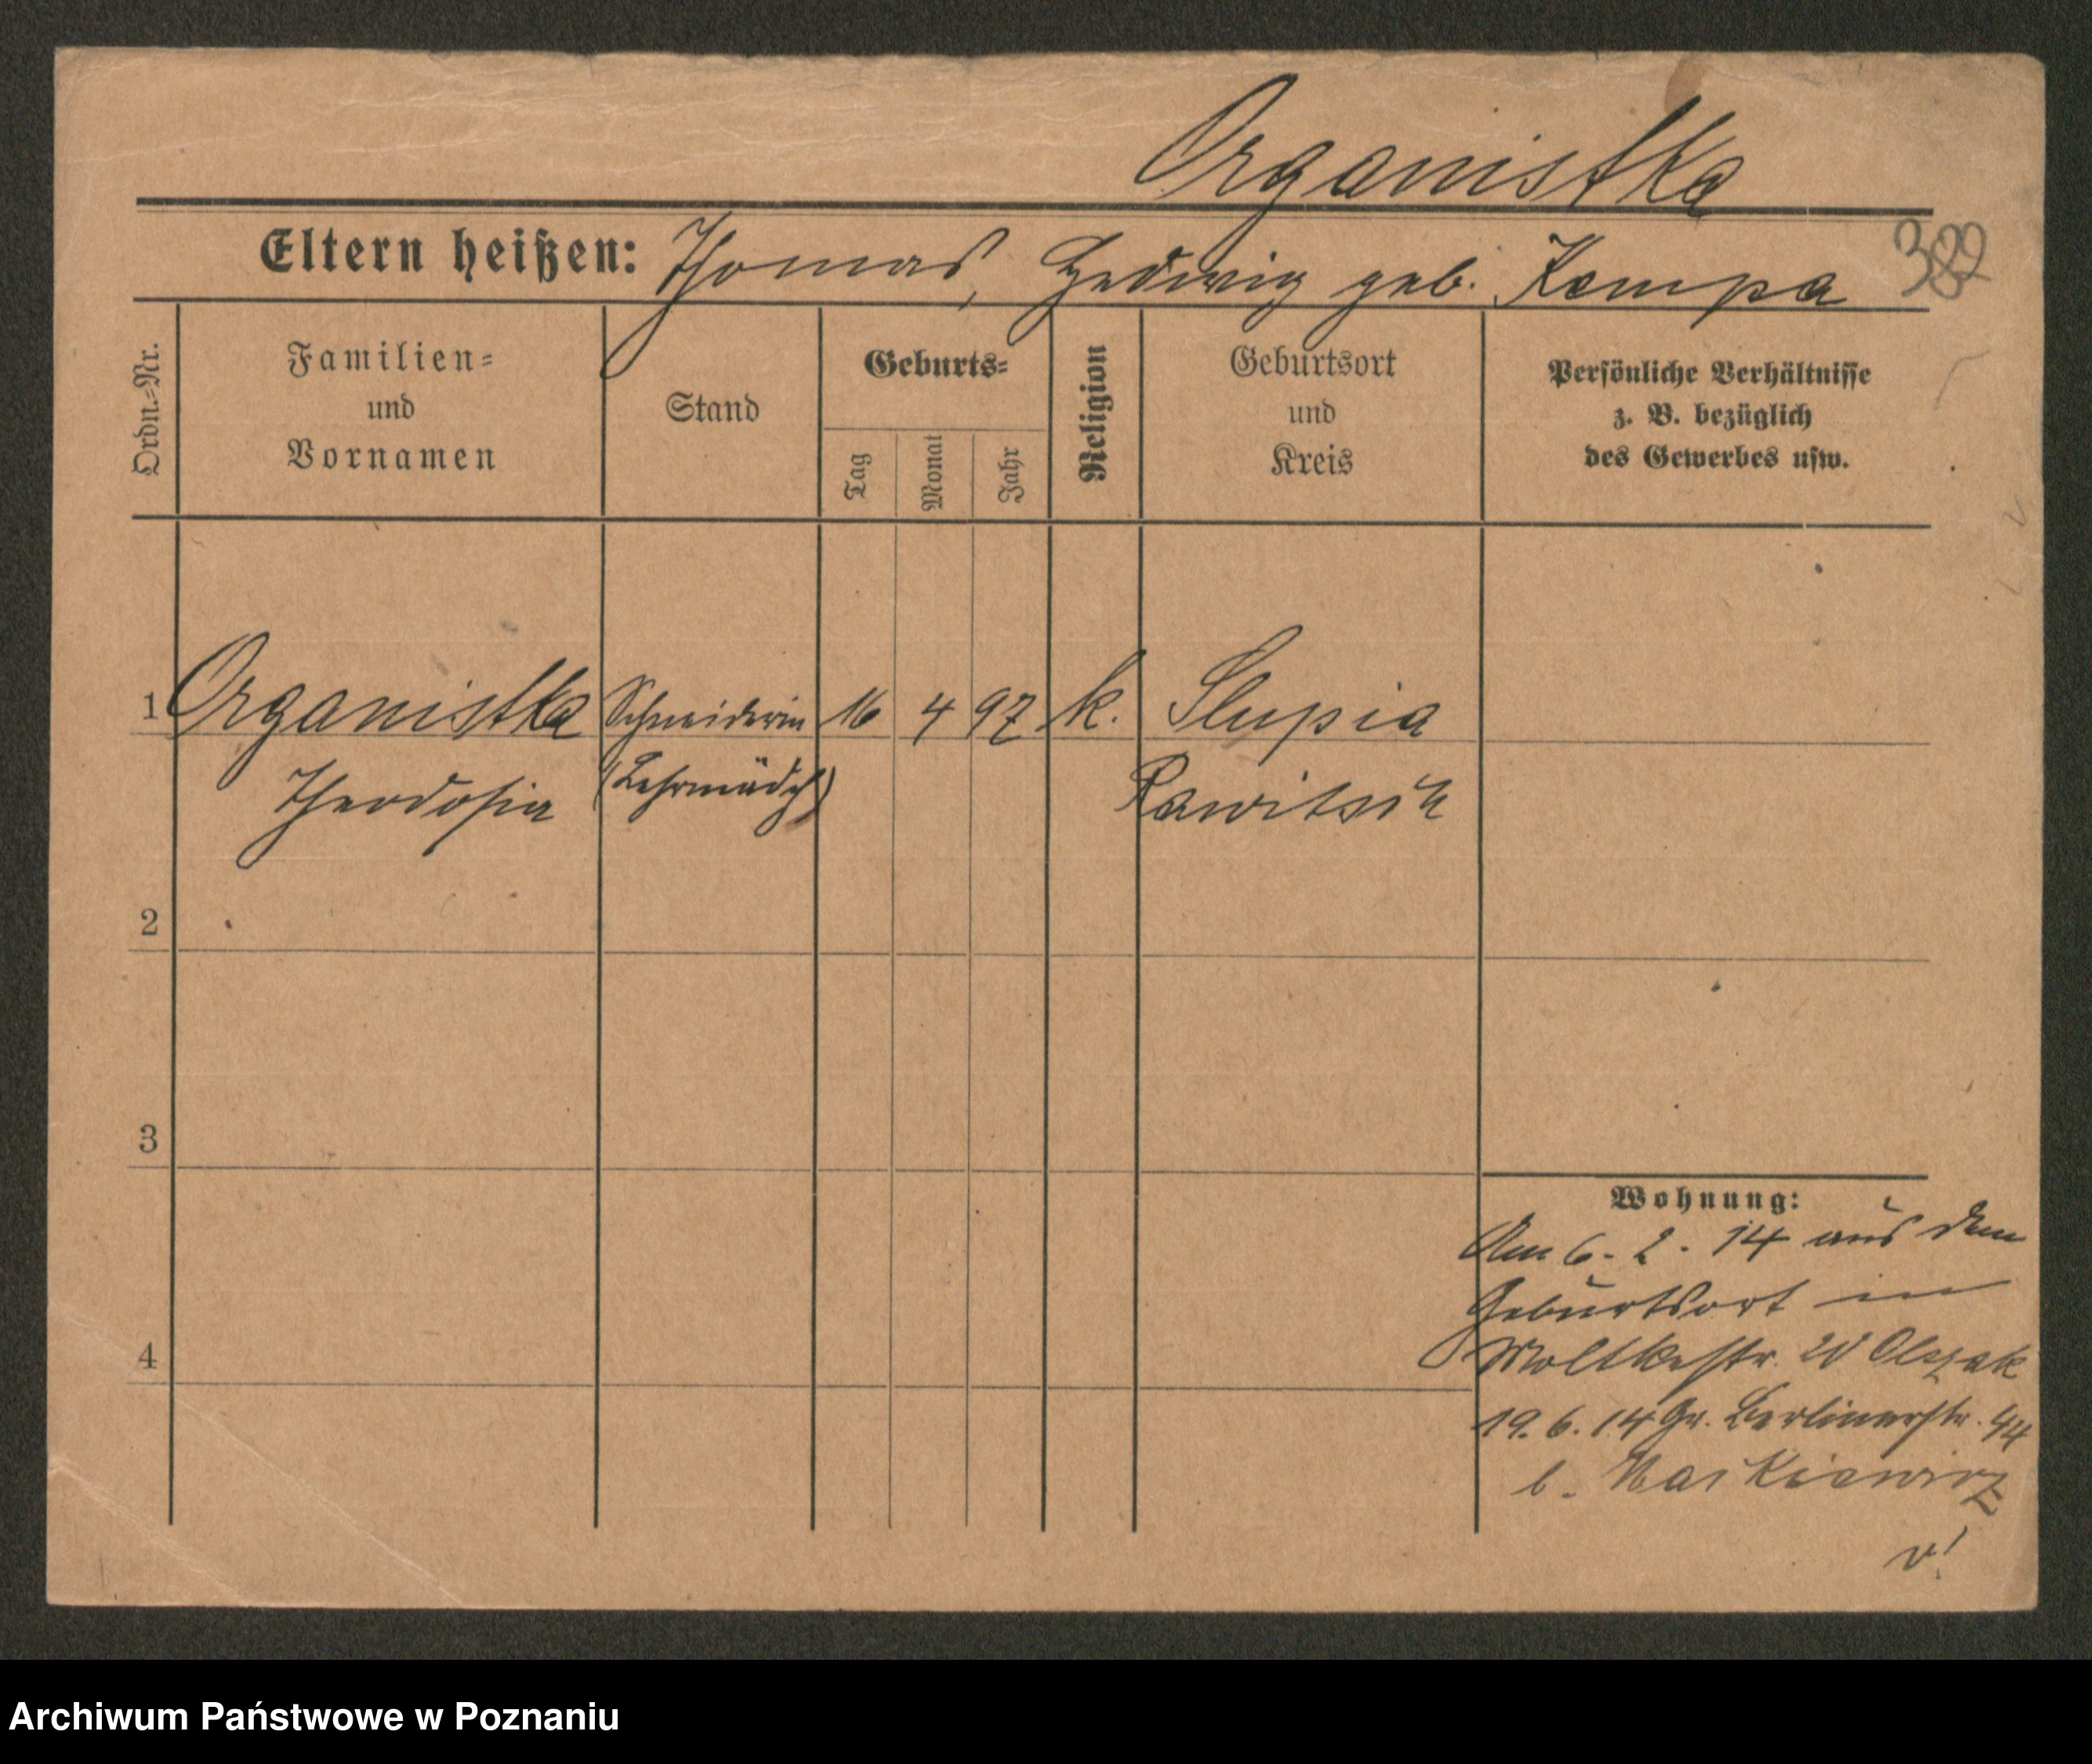 Organistka
Eltern heißen: Thomas, Hedwig geb. Kempa
Ordn.-Nr.
Familien-
und
Vornamen
Stand
Geburts-
Tag
Monat
Jahr
Religion
Geburtsort
und
Kreis
Persönliche Verhältnisse
z. B. bezüglich
des Gewerbes usw.
1 Organistka Schneiderin 16 4 97 k. Slupia
Theodosia (Lehrmädch) Rawitsch
2
3
4
Wohnung:
Am 6. 2. 14 aus dem
Geburtsort in
Moltkestr. Olszak
19. 6. 14 Gr. Berlinerstr. 44
b.
v!
Archiwum Państwowe w Poznaniu